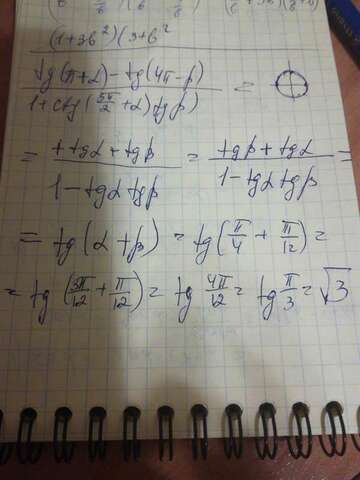 (1+3b²)(3+b²
tg(π+α)-tg(4π-β)
1+ctg(3π/2+α)tgβ) =
= +tgα+tgβ / 1-tgα tgβ = tgβ+tgα / 1-tgα tgβ =
= tg(α+β) = tg(π/4 + π/12) =
= tg(3π/12 + π/12) = tg 4π/12 = tg π/3 = √3